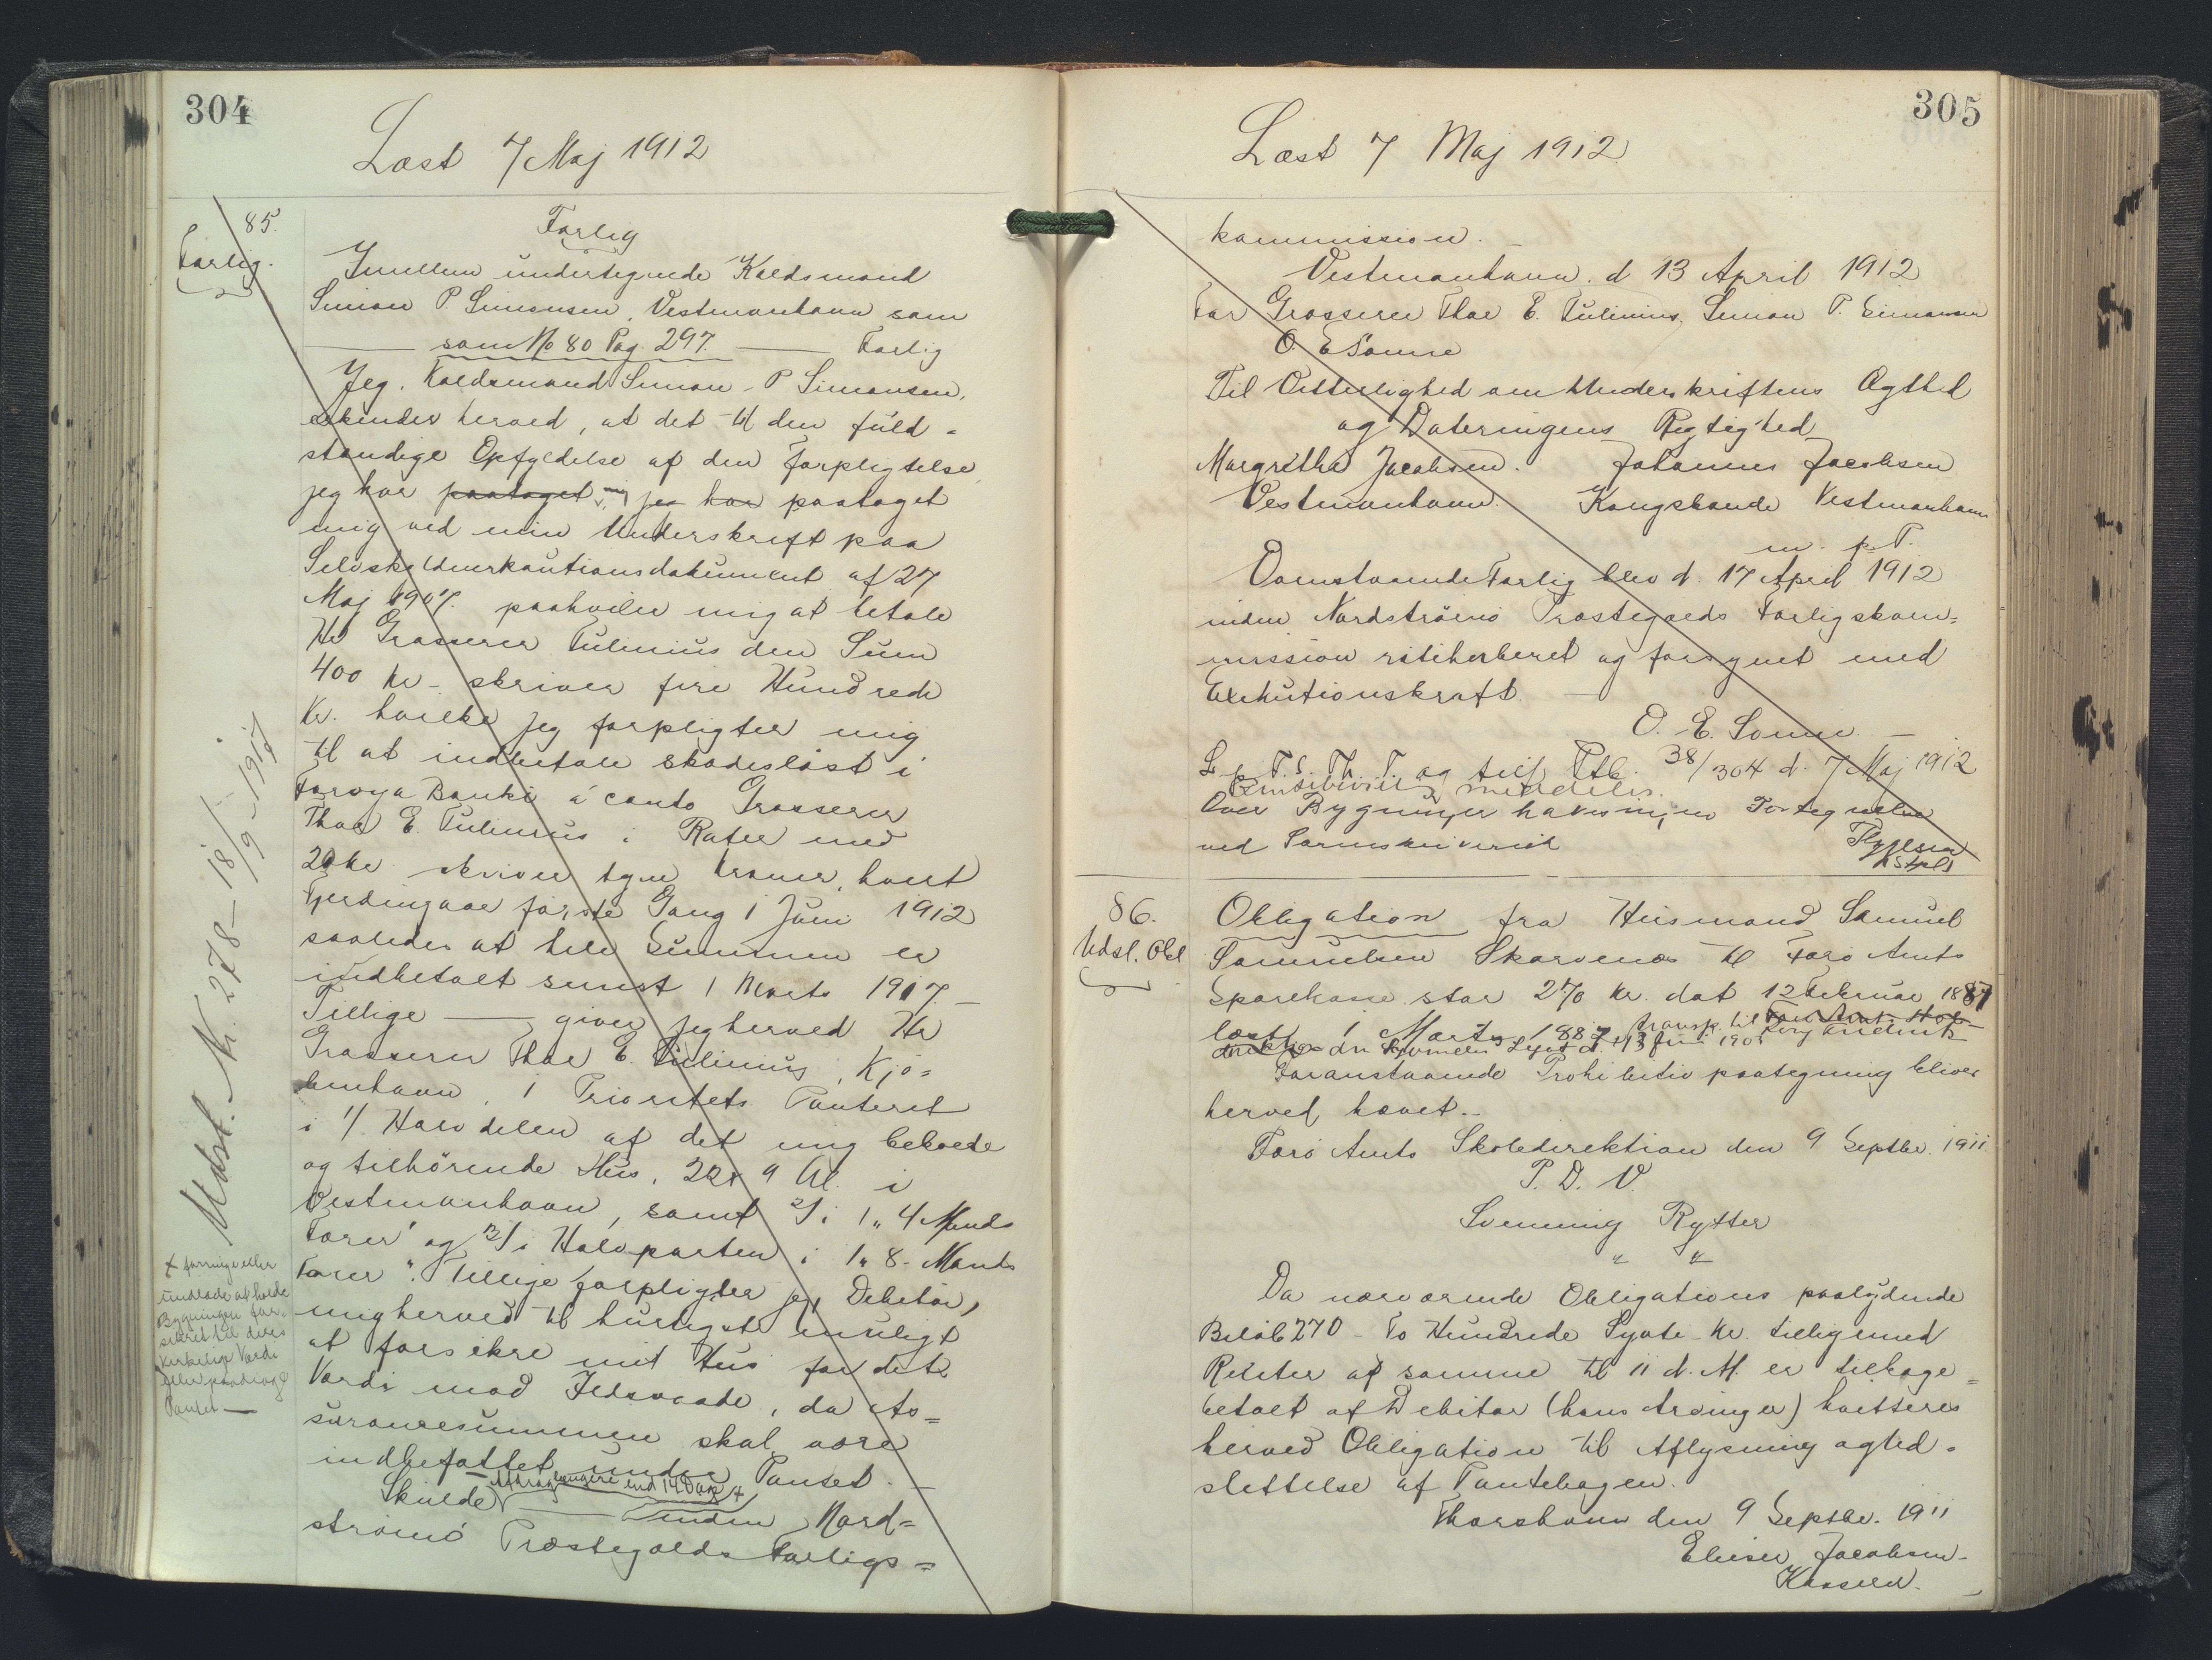 304
Læst 7 Maj 1912
85.
Forlig.
Forlig
Imellem undertegnede Koldsmand
Simon P. Simonsen, Vestmanhavn som
som No 80 Pag. 297. Forlig
Jeg, Koldsmand Simon P Simonsen,
erkender herved, at det til den fuld-
stændige Opfyldelse af den Forpligtelse
jeg har paataget mig jeg har paataget
mig ved min Underskrift paa
Selvskyldnerkautionsdokument af 27
Maj 1907. paahviler mig at betale
Hr Grosserer Tulinius den Sum
400 Kr - skriver fire Hundrede
Kr. hvilke jeg forpligter mig
til at indbetale skadesløst i
Førøya Banki a' conto Grosserer
Thor E. Tulinius i Rater med
20 Kr skriver tyve Kroner, hvert
Fjerdingaar første Gang 1 Juni 1912
saaledes at hele Summen er
indbetalt senest 1 Marts 1917 -
Tillige giver jeg herved Hr
Grosserer Thor E. Tulinius, Kjø-
benhavn, 1 Prioritets Panteret
i 1/ Halvdelen af det mig beboede
og tilhørende Hus, 22 x 9 Al. i
Vestmanhavn, samt 2/ i 1 „ 4 Mands
Farer' og 12/ i Halvparten i 1 „ 8- Mands
Farer „. Tillige forpligter jeg, Debitor,
mig herved til hurtigst muligt
at forsikre mit Hus for dets
Værdi mod Ildsvaade, da As-
surancesummen skal være
indbefattet under Pantet. -
Skulde Afdrag længere end 14 Dage +
inden Nord-
strømø Præstegælds Forligs-
+ forringe eller
undlade at holde
Bygningen for-
sikret til dens
virkelige Værdi
eller
Pantet -
Udsl. Nr. 278 - 18/9 - 1917
305
Læst 7 Maj 1912
kommission. -
Vestmanhavn. d 13 April 1912
For Grosserer Thor E. Tulinius, Simon P. Simonsen
O. E Sonne
Til Vitterlighed om Underskriftens Ægthed
og Dateringens Rigtighed
Margretha Jacobsen. Johannes Jacobsen
Vestmanhavn. Kongsbonde Vestmanhavn
m. p. T.
Ovenstaaende Forlig blev d. 17 April 1912
inden Nordstrømø Præstegælds Forligskom-
mission ratihaberet og forsynet med
Exekutionskraft. -
O. E. Sonne. -
L. p. T. S. Th. T. og tilf Ptb. 38/304 d. 7 Maj 1912
meddeles.
Over Bygninger haves ingen Fortegnelse
ved Sorenskriveriet
86.
Udsl. Obl
Obligation fra Husmand Samuel
Samuelsen Skarvenes til Færø Amts
Sparekasse stor 270 Kr. dat 12 Februar 1887
læst 1 Marts 1887 transp. til
Foranstaaende Prohibitiv paategning bliver
herved hævet. -
Færø Amts Skoledirektion den 9 Septbr. 1911
P. D. V.
Svenning Rytter
" "
Da nærværende Obligations paalydende
Beløb 270 - To Hundrede Syvti - Kr. tilligemed
Renter af samme til 11 d. M. er tilbage-
betalt af Debitor (hans Arvinger) kvitteres
herved Obligation til Aflysning og Ud-
slettelse af Pantebogen.
Thorshavn den 9 Septbr. 1911
Elieser Jacobsen -
Kasserer. -